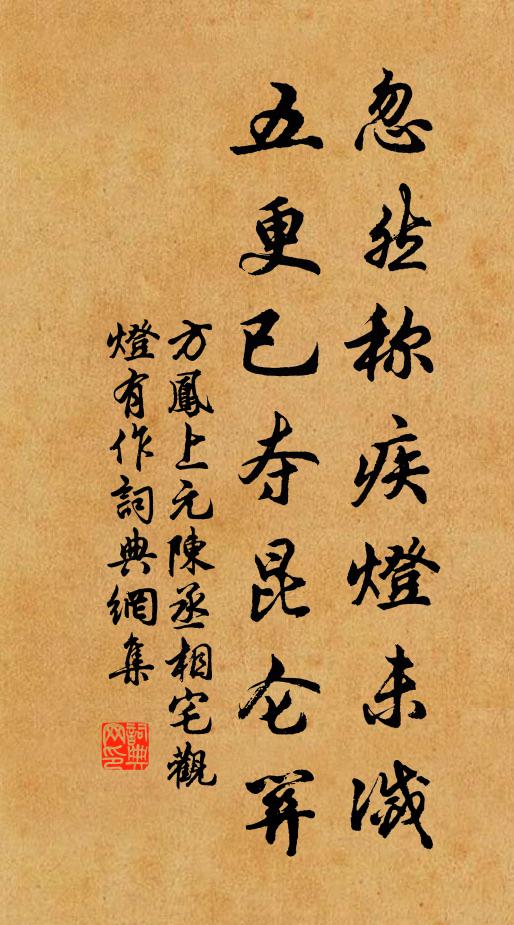 忽然称疾燈未滅
五更已夺昆仑关
方鳳上元陳丞相宅觀
燈有作詞典網集
詞典
网印